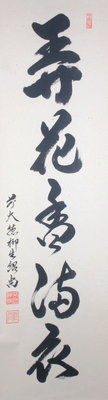 弄花香満衣
前大徳柳生紹尚